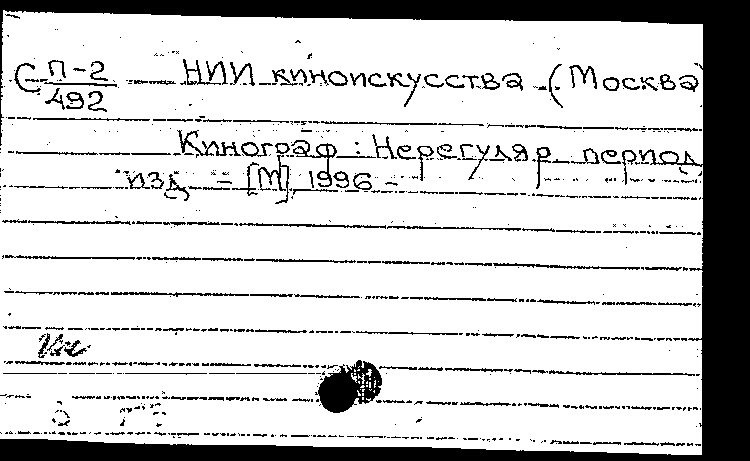 С П-2 НИИ киноискусства (Москва)
492
Кинограф : Нерегуляр. период.
изд. - [М], 1996 -